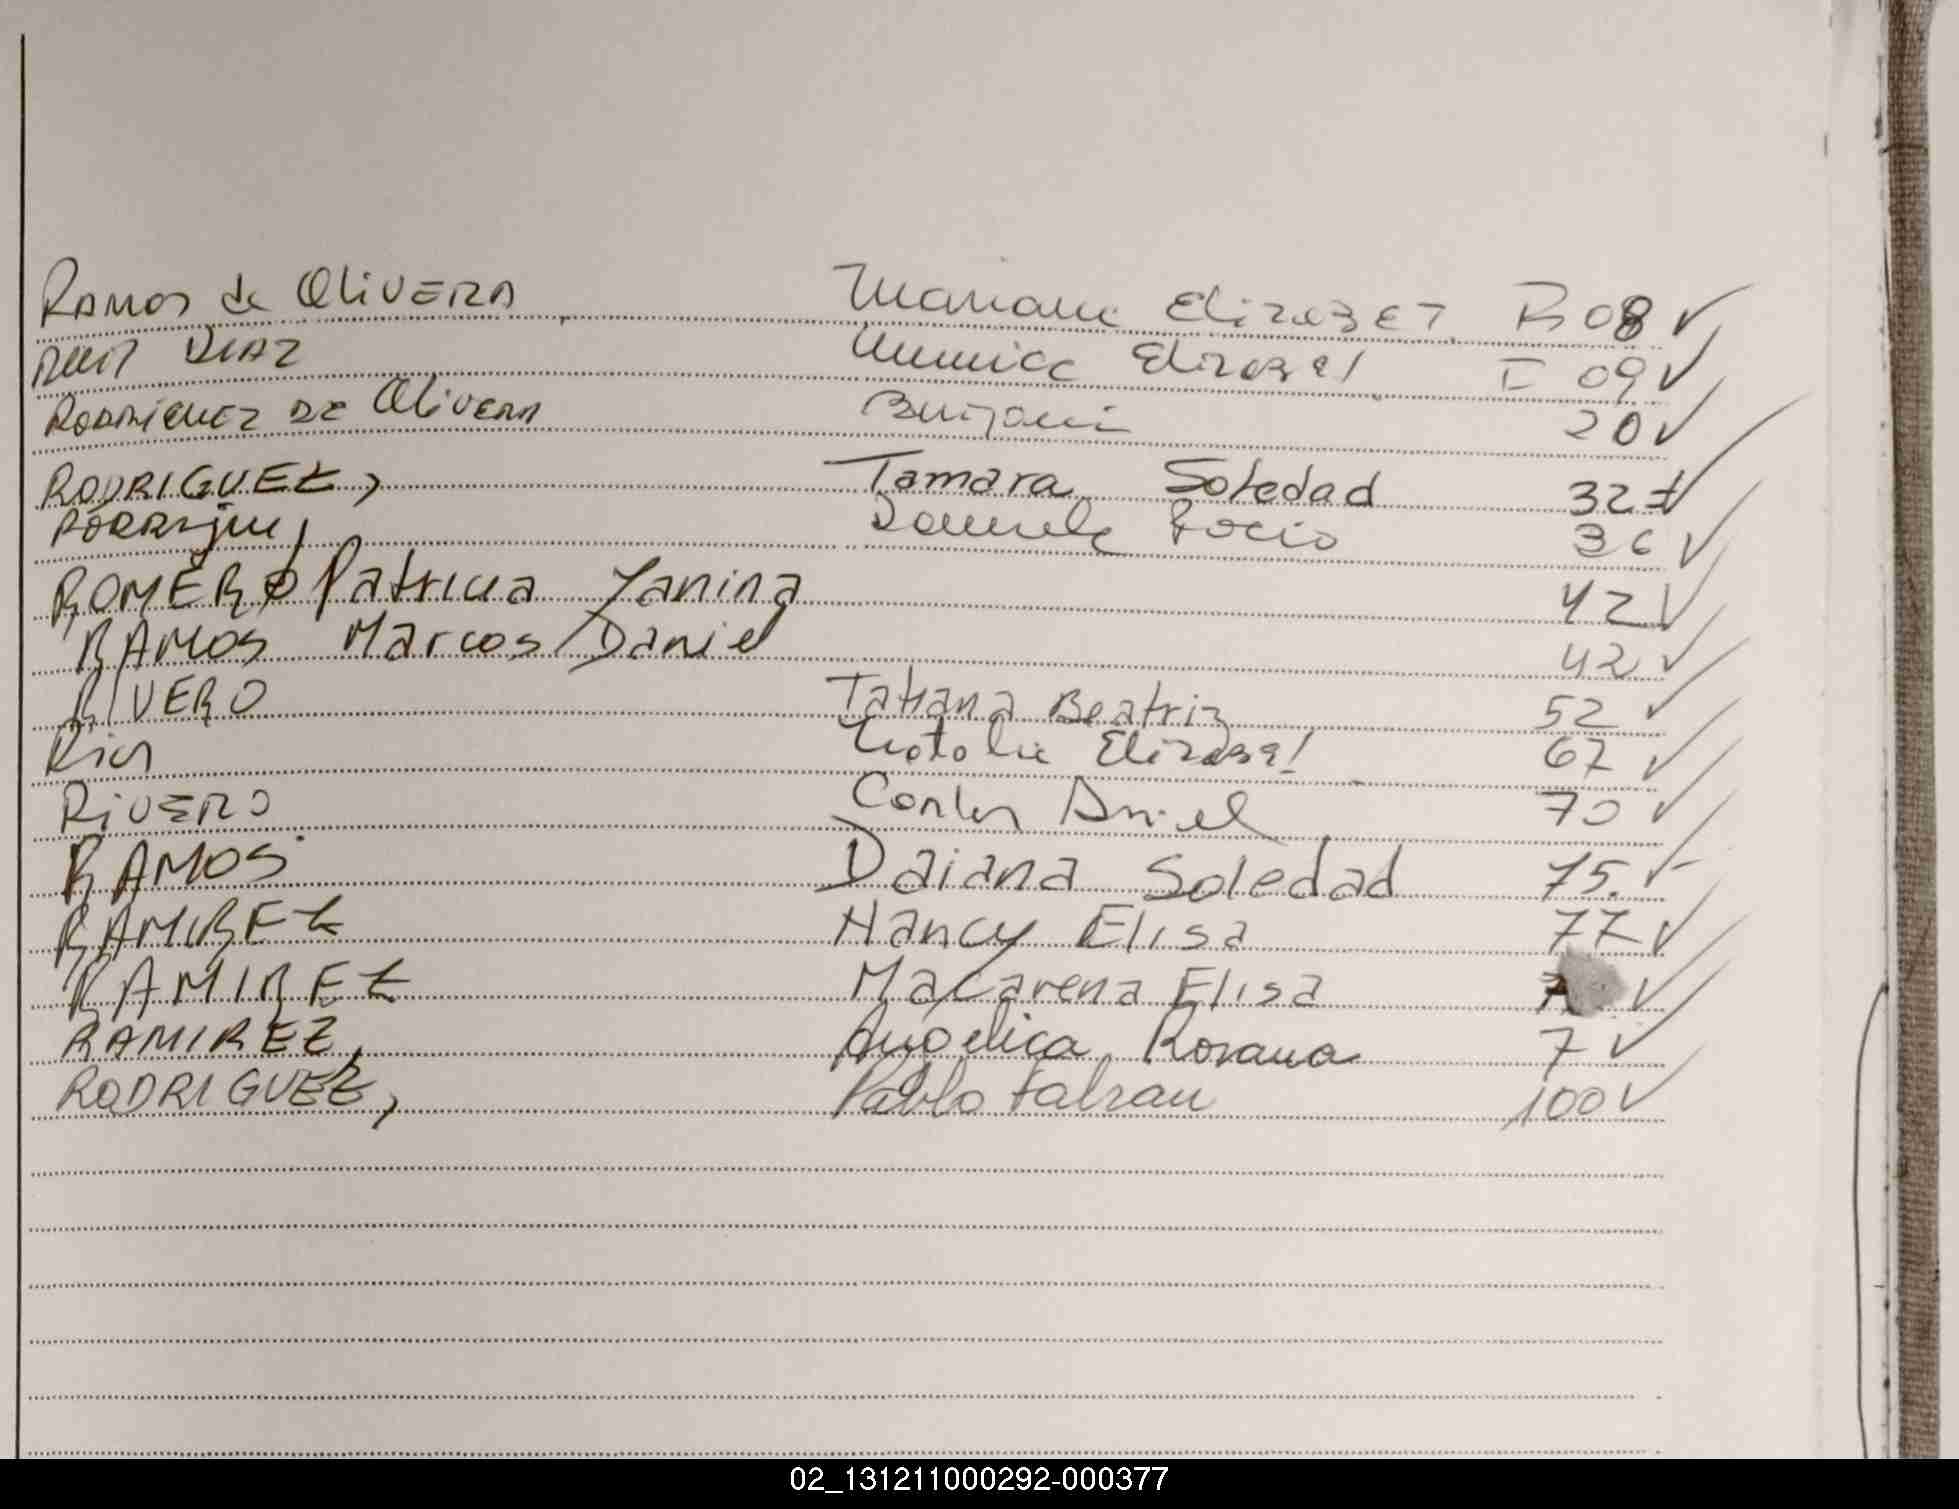 Ramos de Olivera Mariane Elizabet B 08 ✓
Diaz Elizabet I 09 ✓
Rodriguez de Olivera Benjamin 20 ✓
RODRIGUEZ, Tamara Soledad 32 ✓
Rodriguez Rocio 36 ✓
ROMERO Patricia Yanina 42 ✓
RAMOS Marcos Daniel 42 ✓
RIVERO Tatiana Beatriz 52 ✓
Rios Natalia Elizabet 67 ✓
Rivero Carlos Ariel 70 ✓
RAMOS Daiana Soledad 75 ✓
RAMIREZ Nancy Elisa 77 ✓
RAMIREZ Macarena Elisa ✓
RAMIREZ, Angelica Roxana 7 ✓
RODRIGUEZ, Pablo Fabian 100 ✓
02_131211000292-000377